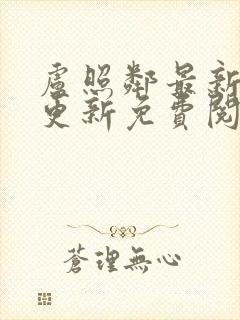 盧照鄰最新
更新免費閱
蒼理無心